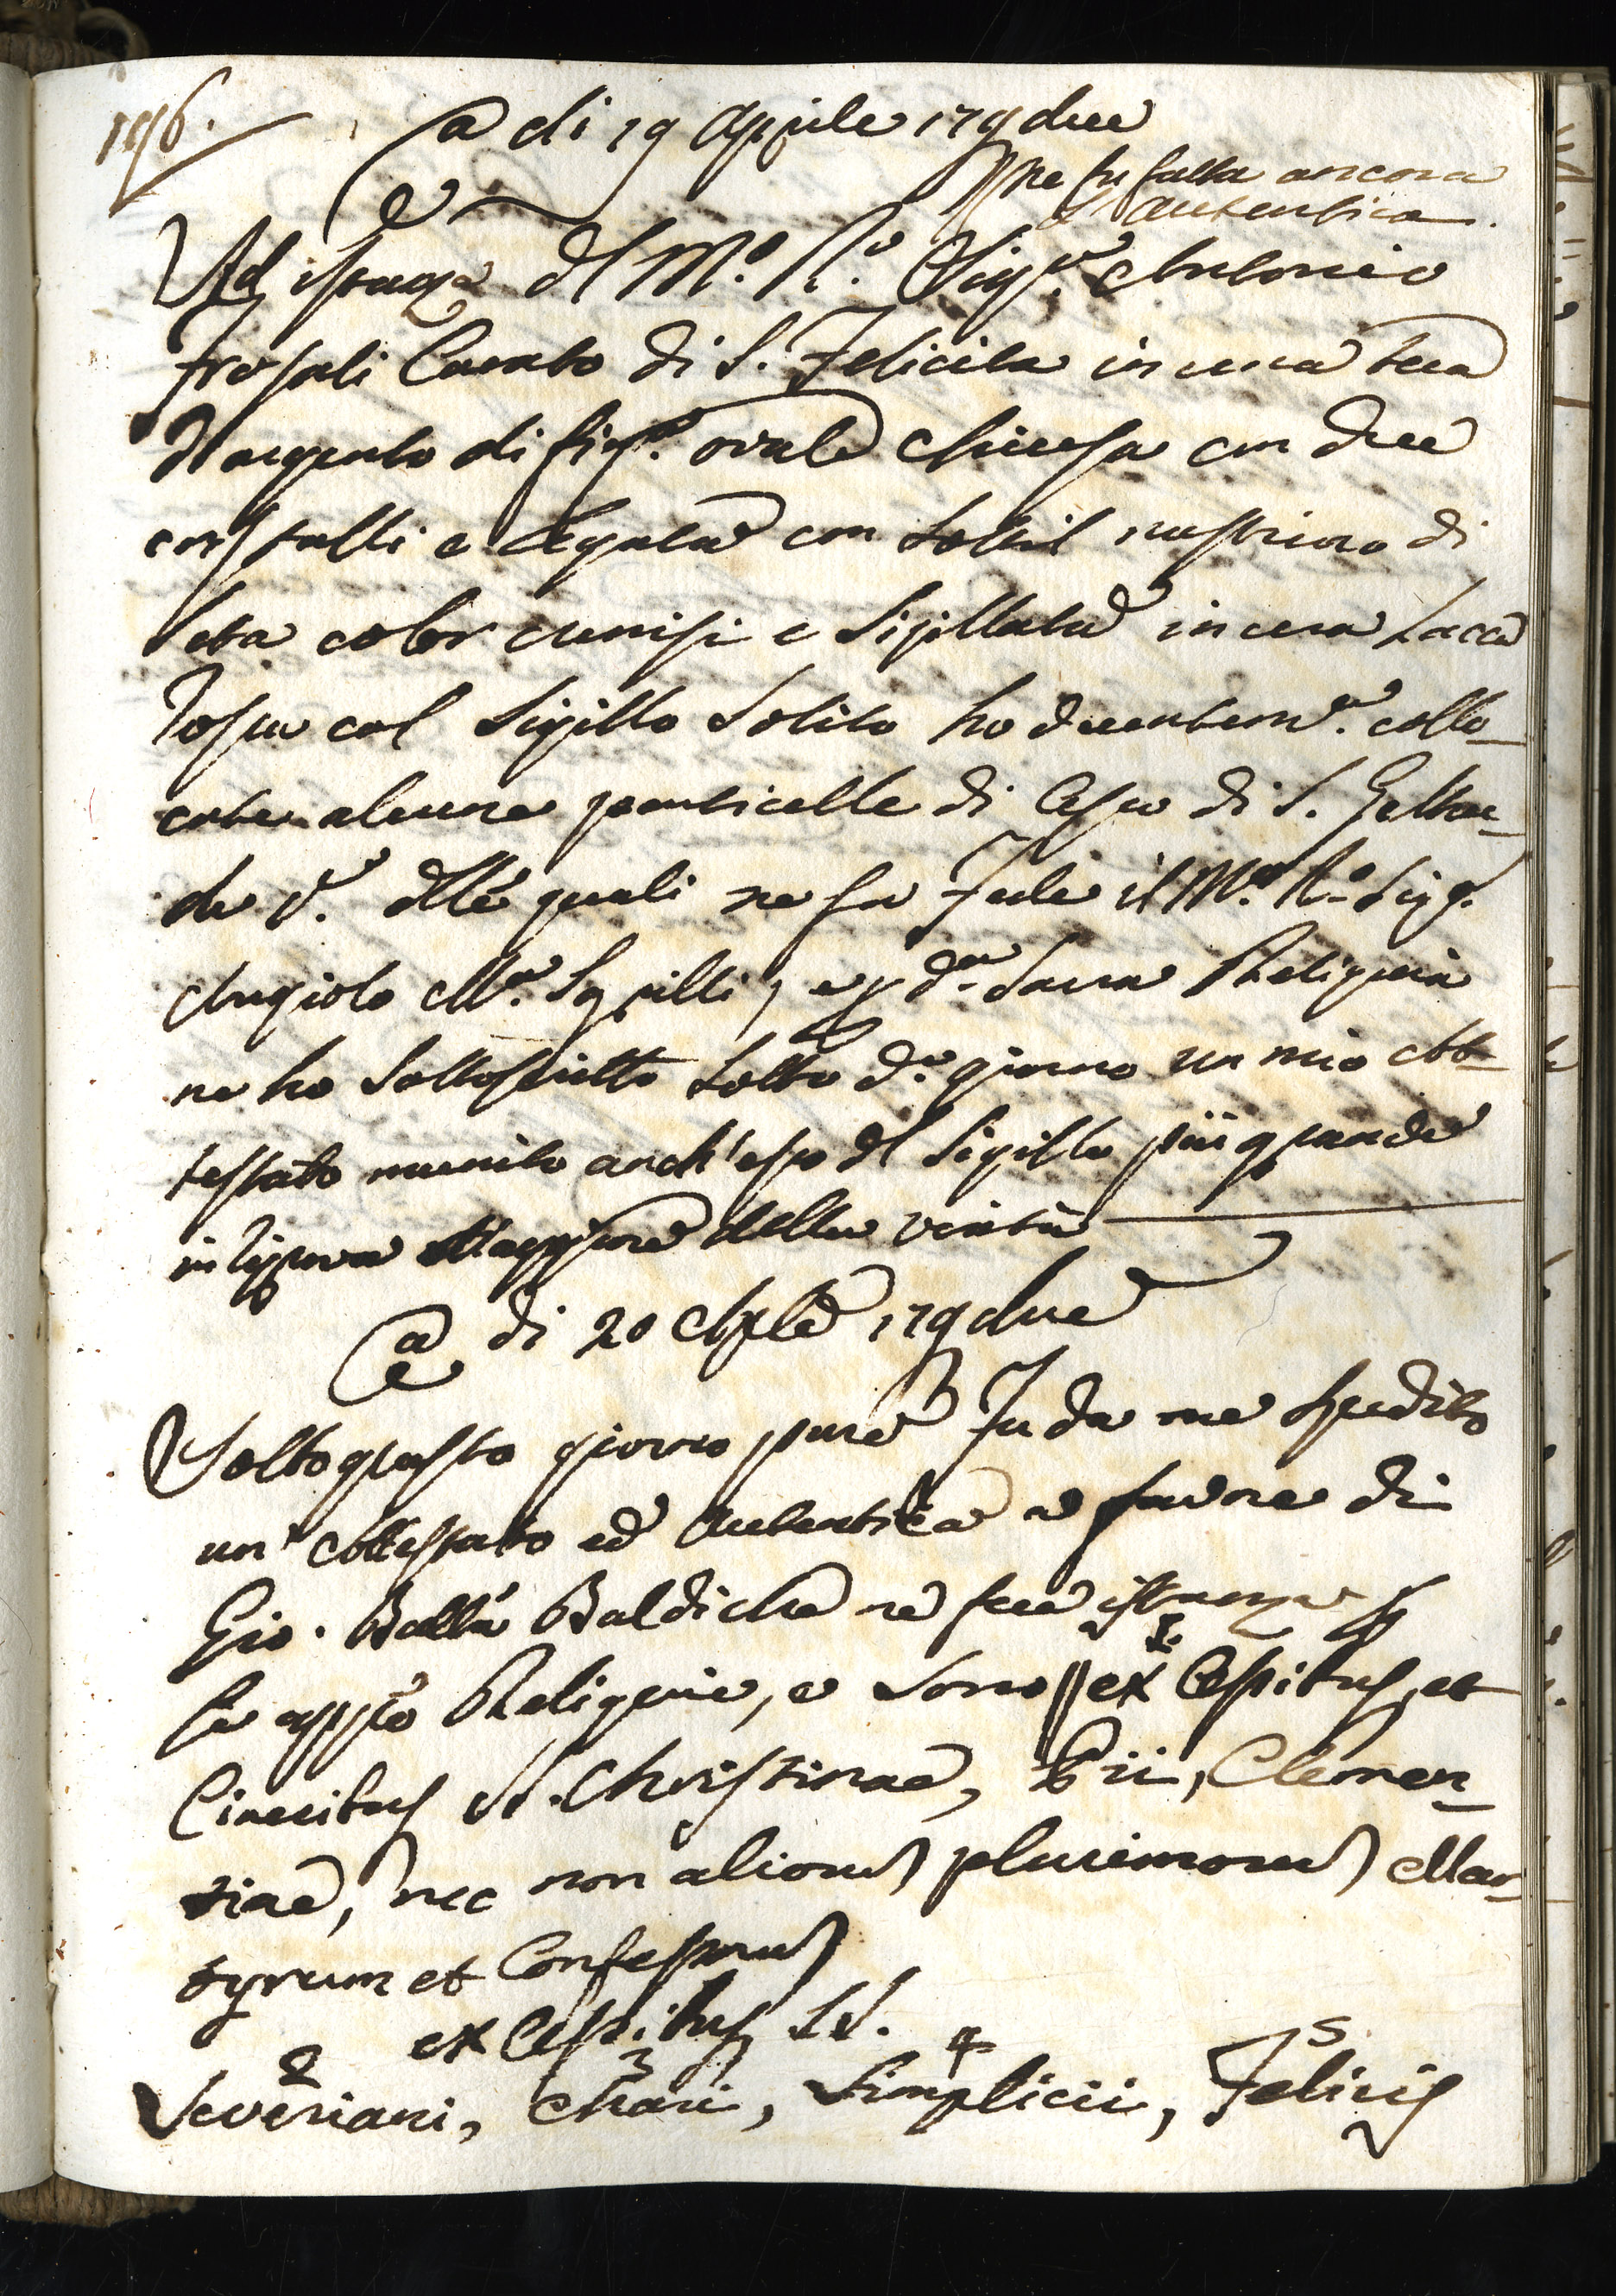 196.
a di 19 Aprile 179due
ne fu fatta ancora
l'Autentica.
Ad istanza dl M.º R.º Sig.re Antonio
Frosali Curato di S. Felicita in una teca
d'argento di fig.ra ovale chiusa con due
cristalli e legata con sottil nastrino di
seta color cremisi e sigillata in cera lacca
rossa col sigillo solito ho decentem.e collo-
cate alcune particelle di Cassa di S. Geltru-
de V. dlle quali ne fa fede il M.º R.º Sig.
Angiolo M.a Squilli, e p d.a Sacra Reliquia
ne ho sottoscritto sotto d.º giorno un mio At-
testato munito anch'esso dl sigillo più grande
in riprova Maggiore della verità
a di 20 Aple 179due
Sotto questo giorno pure fu da me spedito
un' Attestato ed Autentica a favore di
Gio. Batta Baldi che ne fece istanza p
le appsso Reliquie, e sono ex Cassibus, et
Cineribus SS. Christinae, Pii, Clemen-
tiae, nec non aliorum plurimorum Mar-
tyrum et Confessorum
ex Cassibus SS.
2 3 4 5
Severiani, Chari, Simplicii, Felicis